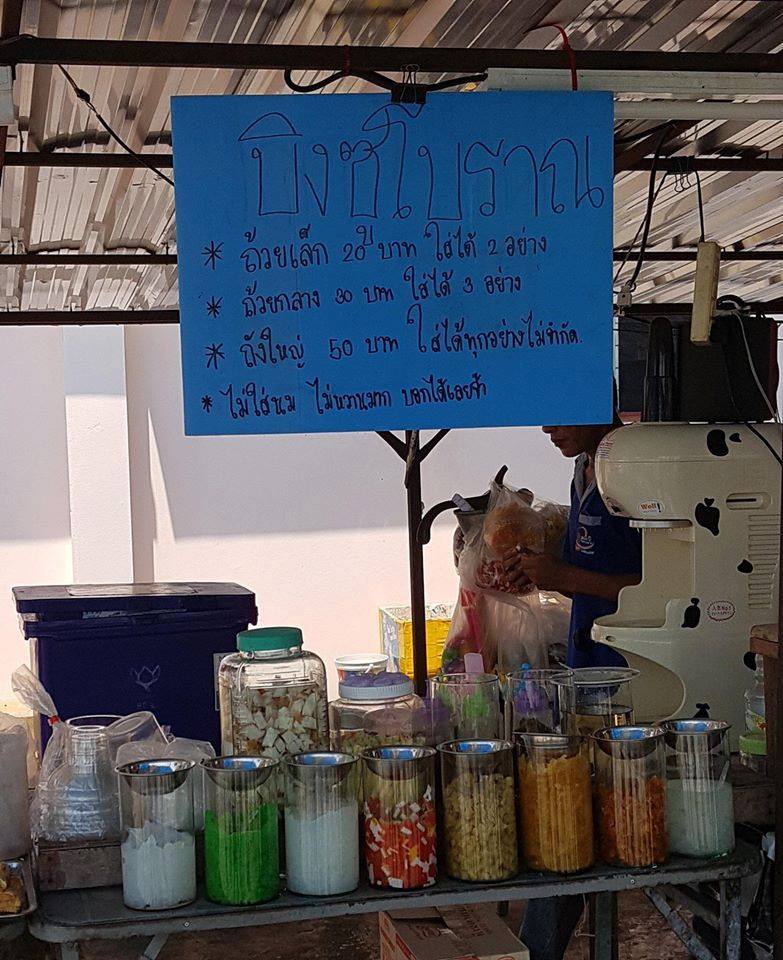 บิงซูโบราณ
* ถ้วยเล็ก 20 บาท ใส่ได้ 2 อย่าง
* ถ้วยกลาง 30 บาท ใส่ได้ 3 อย่าง
* ถังใหญ่ 50 บาท ใส่ได้ทุกอย่างไม่จำกัด.
* ไม่ใส่นม ไม่หวานมาก บอกได้เลยจ้า
Well!